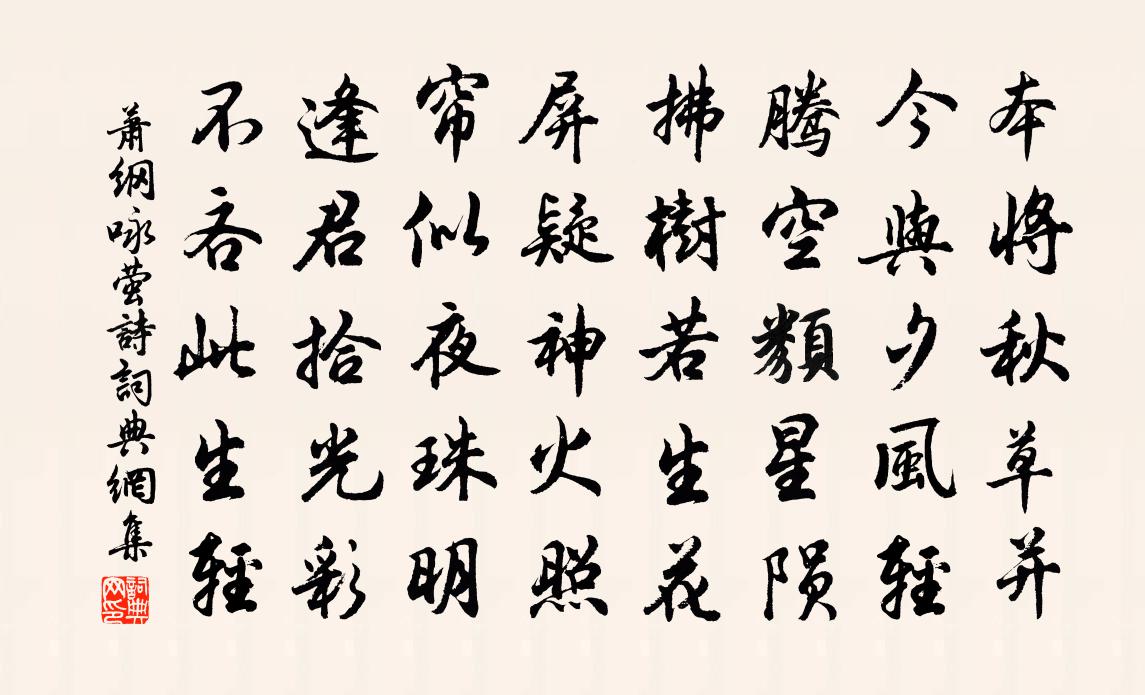 本將秋草并
今與夕風輕
腾空類星隕
拂樹若生花
屏疑神火照
帘似夜珠明
逢君拾光彩
不吝此生輕
蕭纲咏萤詩詞典網集